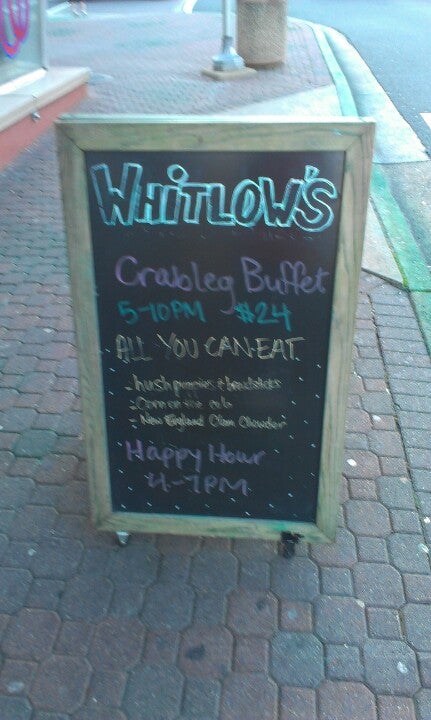 WHiTLOW'S
Crableg Buffet
5-10PM $24
ALL YOU CAN EAT.
- hushpuppies & breadsticks
- Corn on the cob
- New England Clam Chowder
Happy Hour
4-7PM